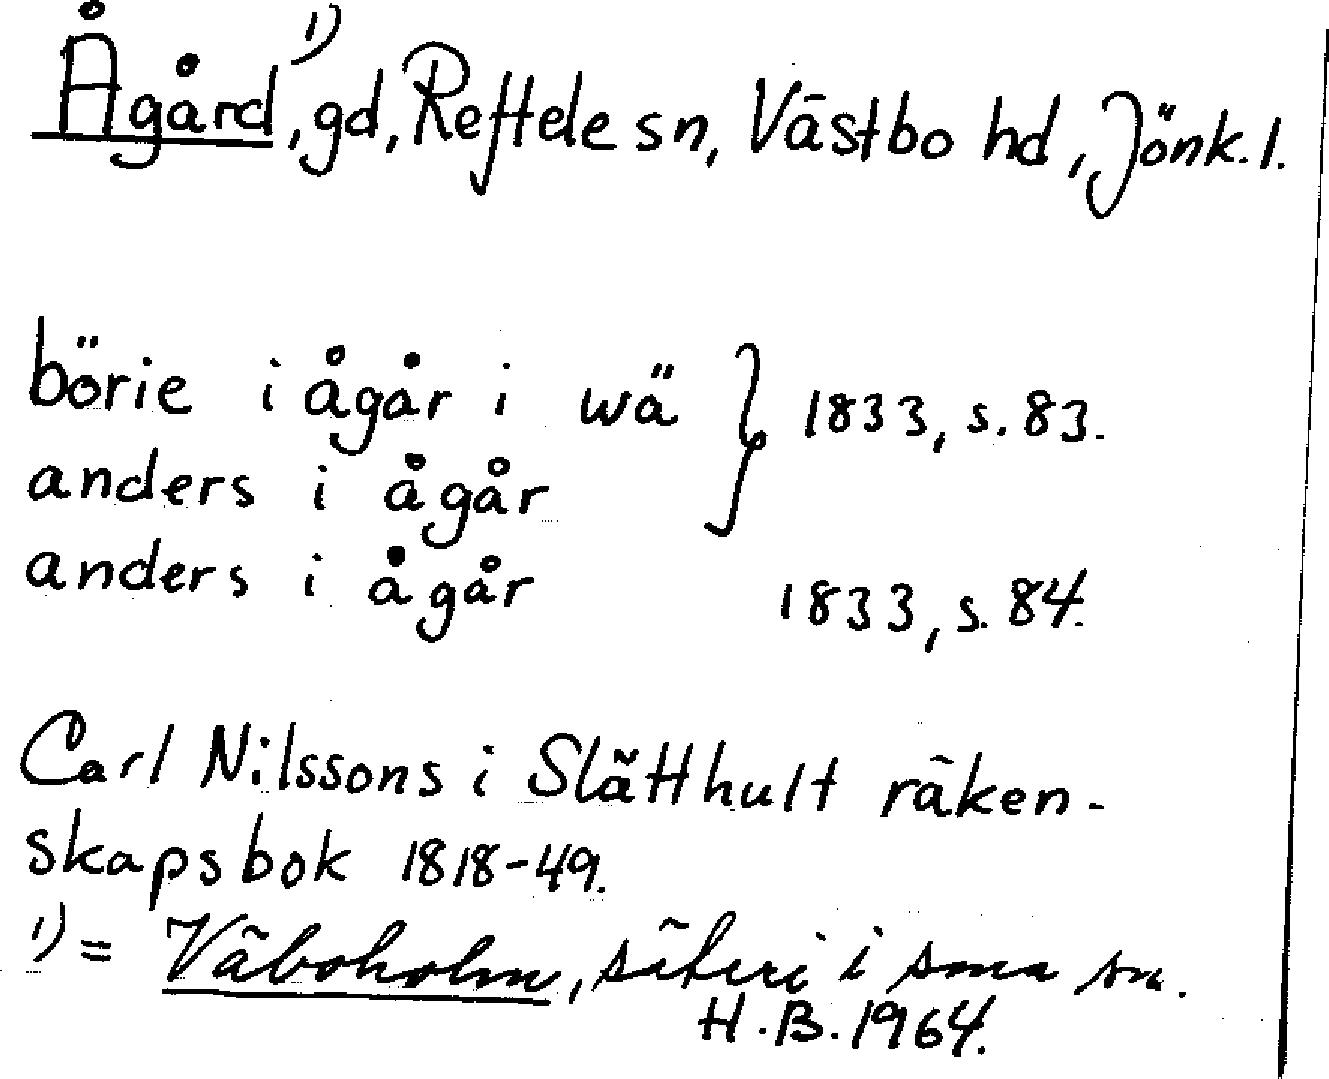 Ågård¹⁾, gd, Reftele sn, Västbo hd, Jönk. l.
börie i ågår i wä } 1833, s. 83.
anders i ågår
anders i ågår 1833, s. 84.
Carl Nilssons i Slätthult räken-
skapsbok 1818-49.
¹⁾ = Väboholm, säteri i sma sn.
H. B. 1964.